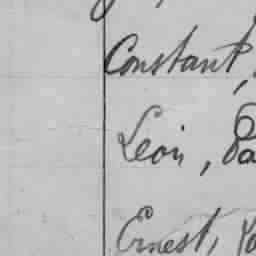 Constant,
Léon,
Ernest,